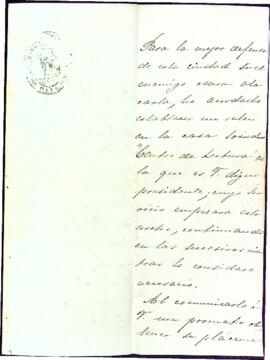 Para la mejor defensa
de esta ciudad si el
enemigo osara ata
carla, he acordado
establecer un reten
en la casa Sociedad
"Centro de Lectura" de
la que es V. digno
presidente; cuyo ser
vicio empezara esta
noche, continuando
en las sucesivas mien
tras lo considere
necesario.
Al comunicarlo á
V. me prometo ob
tener su placeme